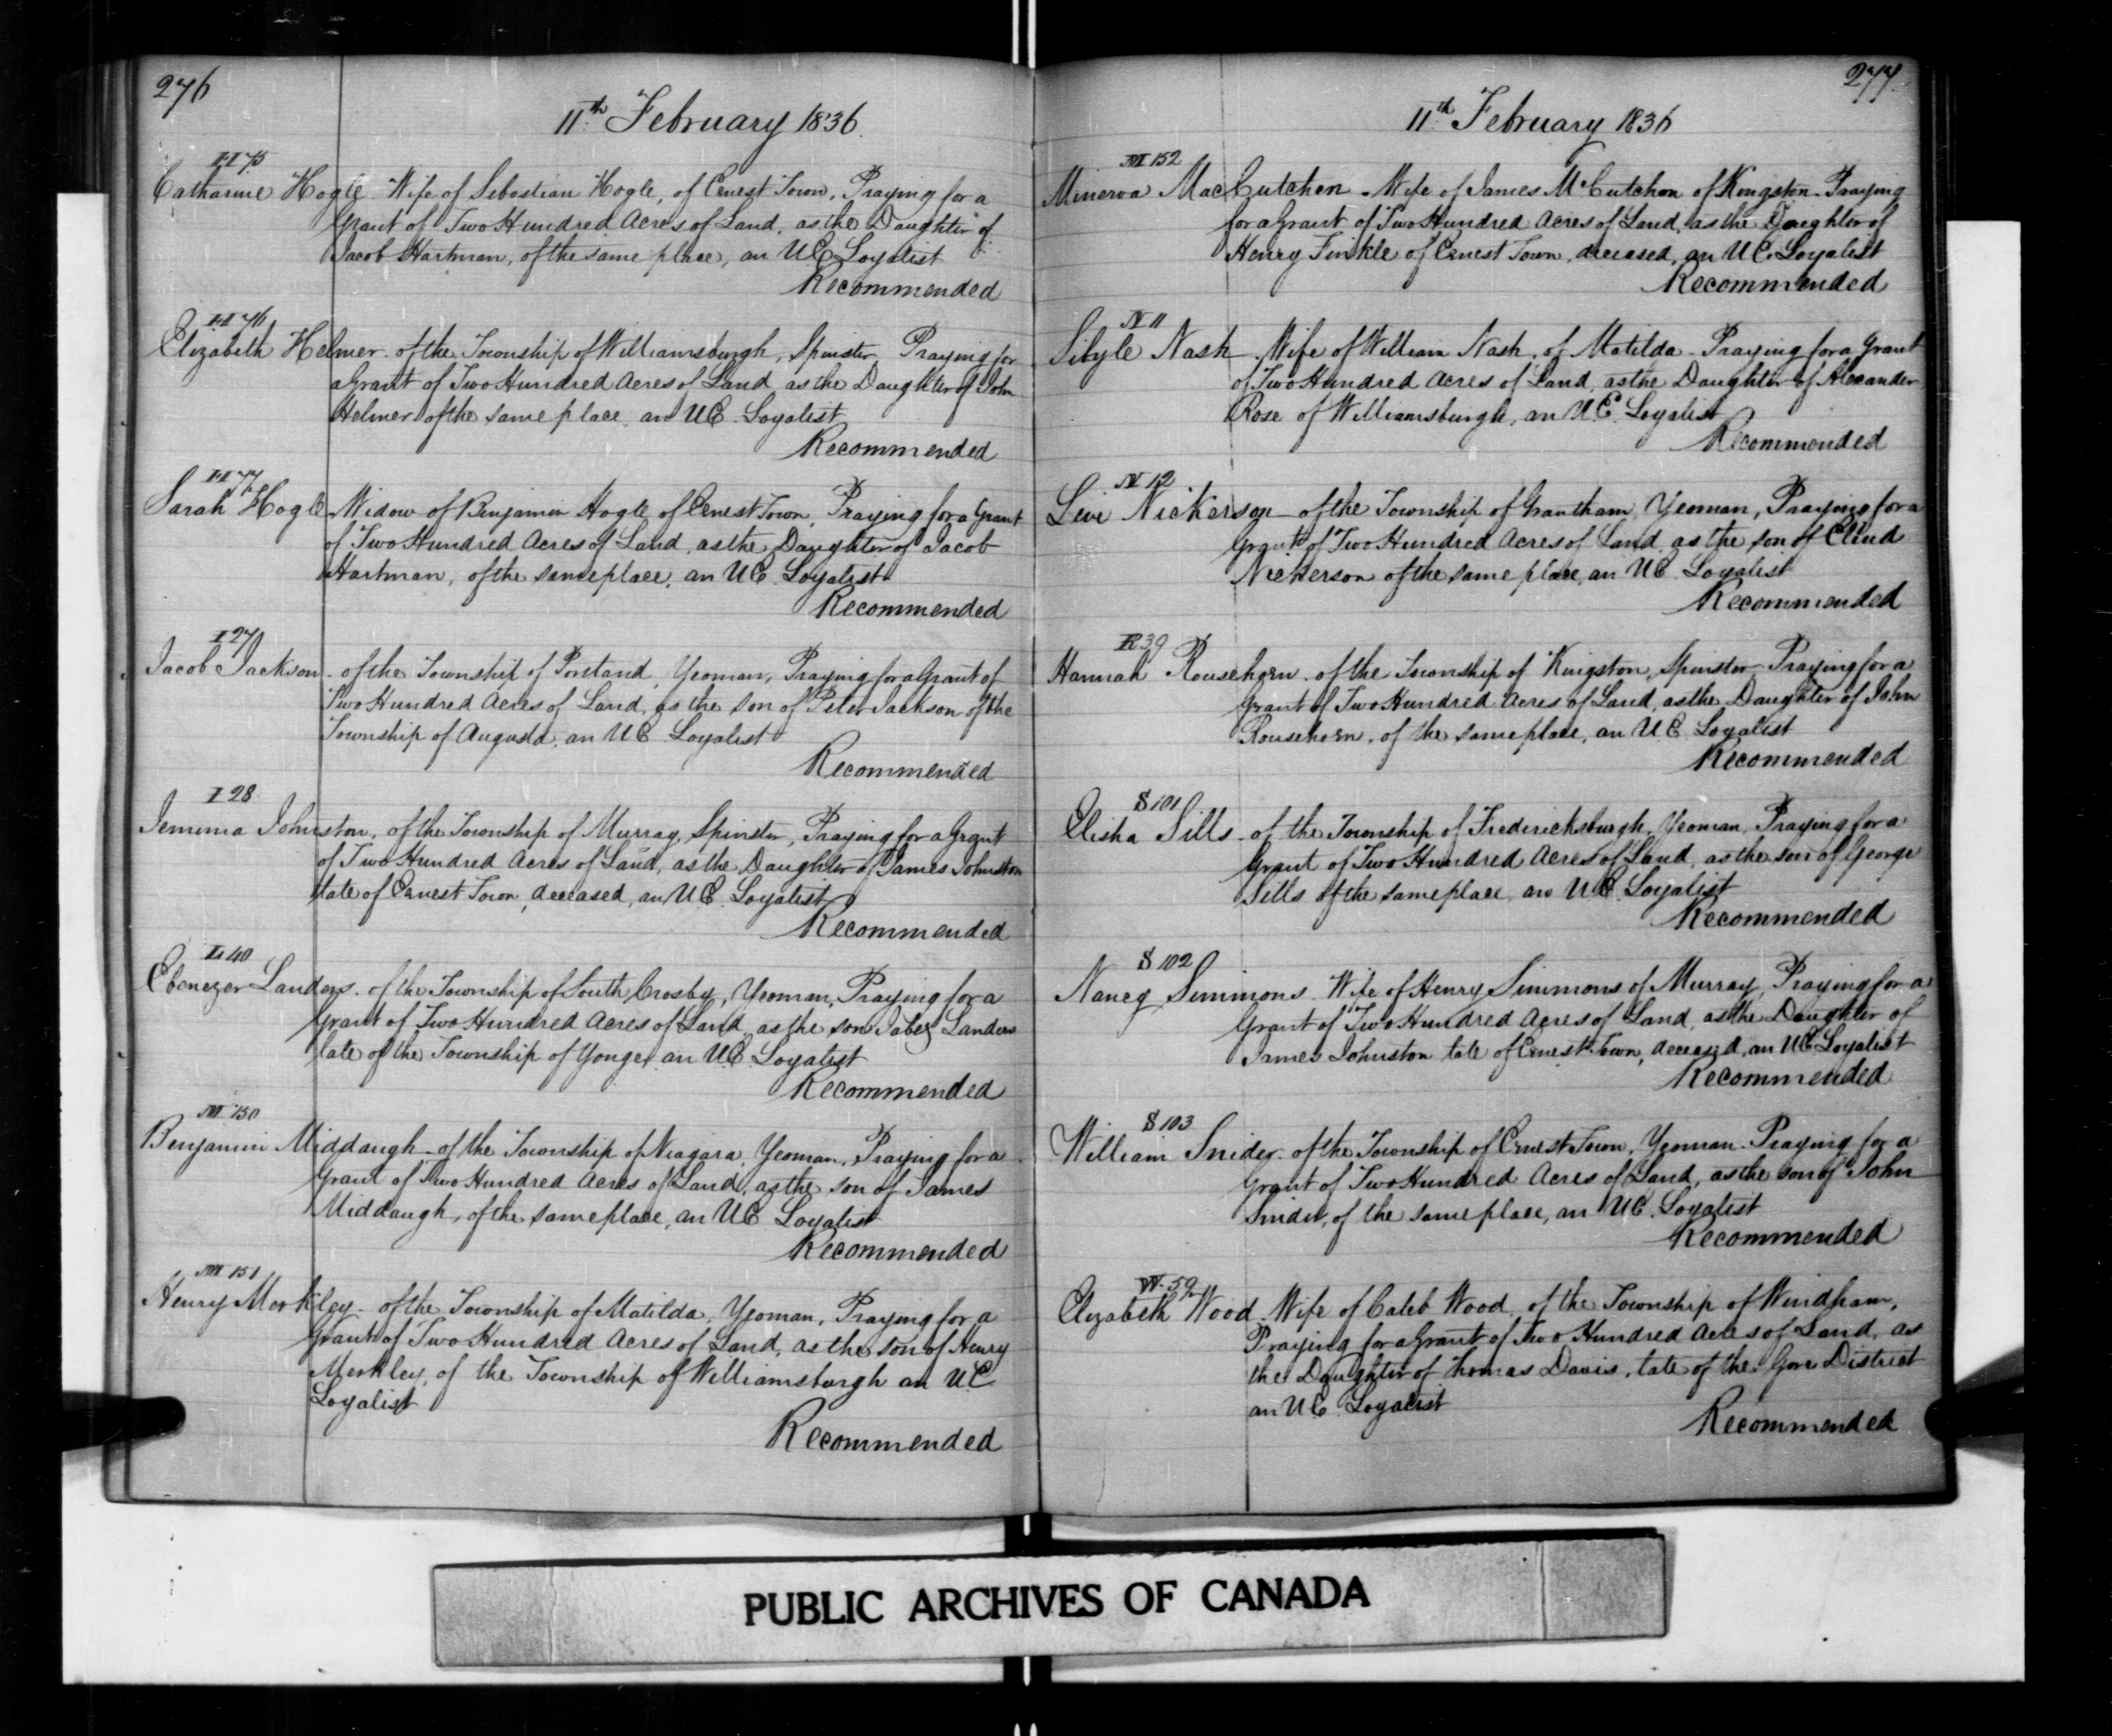 276
11th February 1836.
H 75
Catharine Hogle. Wife of Sebastian Hogle, of Ernest Town, Praying for a
Grant of Two Hundred Acres of Land, as the Daughter of
Jacob Hartman, of the same place, an UE Loyalist
Recommended
H 76
Elizabeth Helmer. of the Township of Williamsburgh, Spinster, Praying for
a Grant of Two Hundred Acres of Land, as the Daughter of John
Helmer of the same place, an UE. Loyalist
Recommended
H 77
Sarah Hogle Widow of Benjamin Hogle of Ernest Town, Praying for a Grant
of Two Hundred Acres of Land, as the Daughter of Jacob
Hartman, of the same place, an UE. Loyalist
Recommended
I 27
Jacob Jackson. of the Township of Portland, Yeoman, Praying for a Grant of
Two Hundred Acres of Land, as the son of Peter Jackson of the
Township of Augusta, an UE Loyalist
Recommended
I 28
Jemima Johnston, of the Township of Murray, Spinster, Praying for a Grant
of Two Hundred Acres of Land, as the Daughter of James Johnston
late of Ernest Town, deceased, an UE. Loyalist
Recommended
L 40
Ebenezer Landers. of the Township of South Crosby, Yeoman, Praying for a
Grant of Two Hundred Acres of Land, as the son Jabez Landers
late of the Township of Yonge, an UE. Loyalist
Recommended
M 150
Benjamin Middaugh of the Township of Niagara, Yeoman, Praying for a
Grant of Two Hundred Acres of Land, as the son of James
Middaugh, of the same place, an UE Loyalist
Recommended
M 151
Henry Merkley of the Township of Matilda, Yeoman, Praying for a
Grant of Two Hundred Acres of Land, as the son of Henry
Merkley, of the Township of Williamsburgh an UE
Loyalist
Recommended
277
11th February 1836
M 152
Minerva MacCutchen. Wife of James McCutchon of Kingston Praying
for a Grant of Two Hundred Acres of Land, as the Daughter of
Henry Finkle of Ernest Town, deceased, an UE. Loyalist
Recommended
N 11
Sibyle Nash Wife of William Nash, of Matilda Praying for a Grant
of Two Hundred Acres of Land, as the Daughter of Alexander
Rose of Williamsburgh, an UE. Loyalist
Recommended
N 12
Levi Nickerson of the Township of Grantham, Yeoman, Praying for a
Grant of Two Hundred Acres of Land, as the son of Eliud
Nickerson of the same place, an UE Loyalist
Recommended
R 39
Hannah Rousehorn. of the Township of Kingston, Spinster Praying for a
Grant of Two Hundred Acres of Land, as the Daughter of John
Rousehorn, of the same place, an UE Loyalist
Recommended
S 101
Elisha Sills of the Township of Fredericksburgh, Yeoman, Praying for a
Grant of Two Hundred Acres of Land, as the son of George
Sills of the same place, an UE. Loyalist
Recommended
S 102
Nancy Simmons. Wife of Henry Simmons of Murray, Praying for a
Grant of Two Hundred Acres of Land, as the Daughter of
James Johnston late of Ernest Town, deceased, an UE Loyalist
Recommended
S 103
William Snider. of the Township of Ernest Town, Yeoman Praying for a
Grant of Two Hundred Acres of Land, as the son of John
Snider, of the same place, an UE. Loyalist
Recommended
W. 59
Elizabeth Wood. Wife of Caleb Wood, of the Township of Windham,
Praying for a Grant of Two Hundred Acres of Land, as
the Daughter of Thomas Davis, late of the Gore District
an UE. Loyalist
Recommended
PUBLIC ARCHIVES OF CANADA